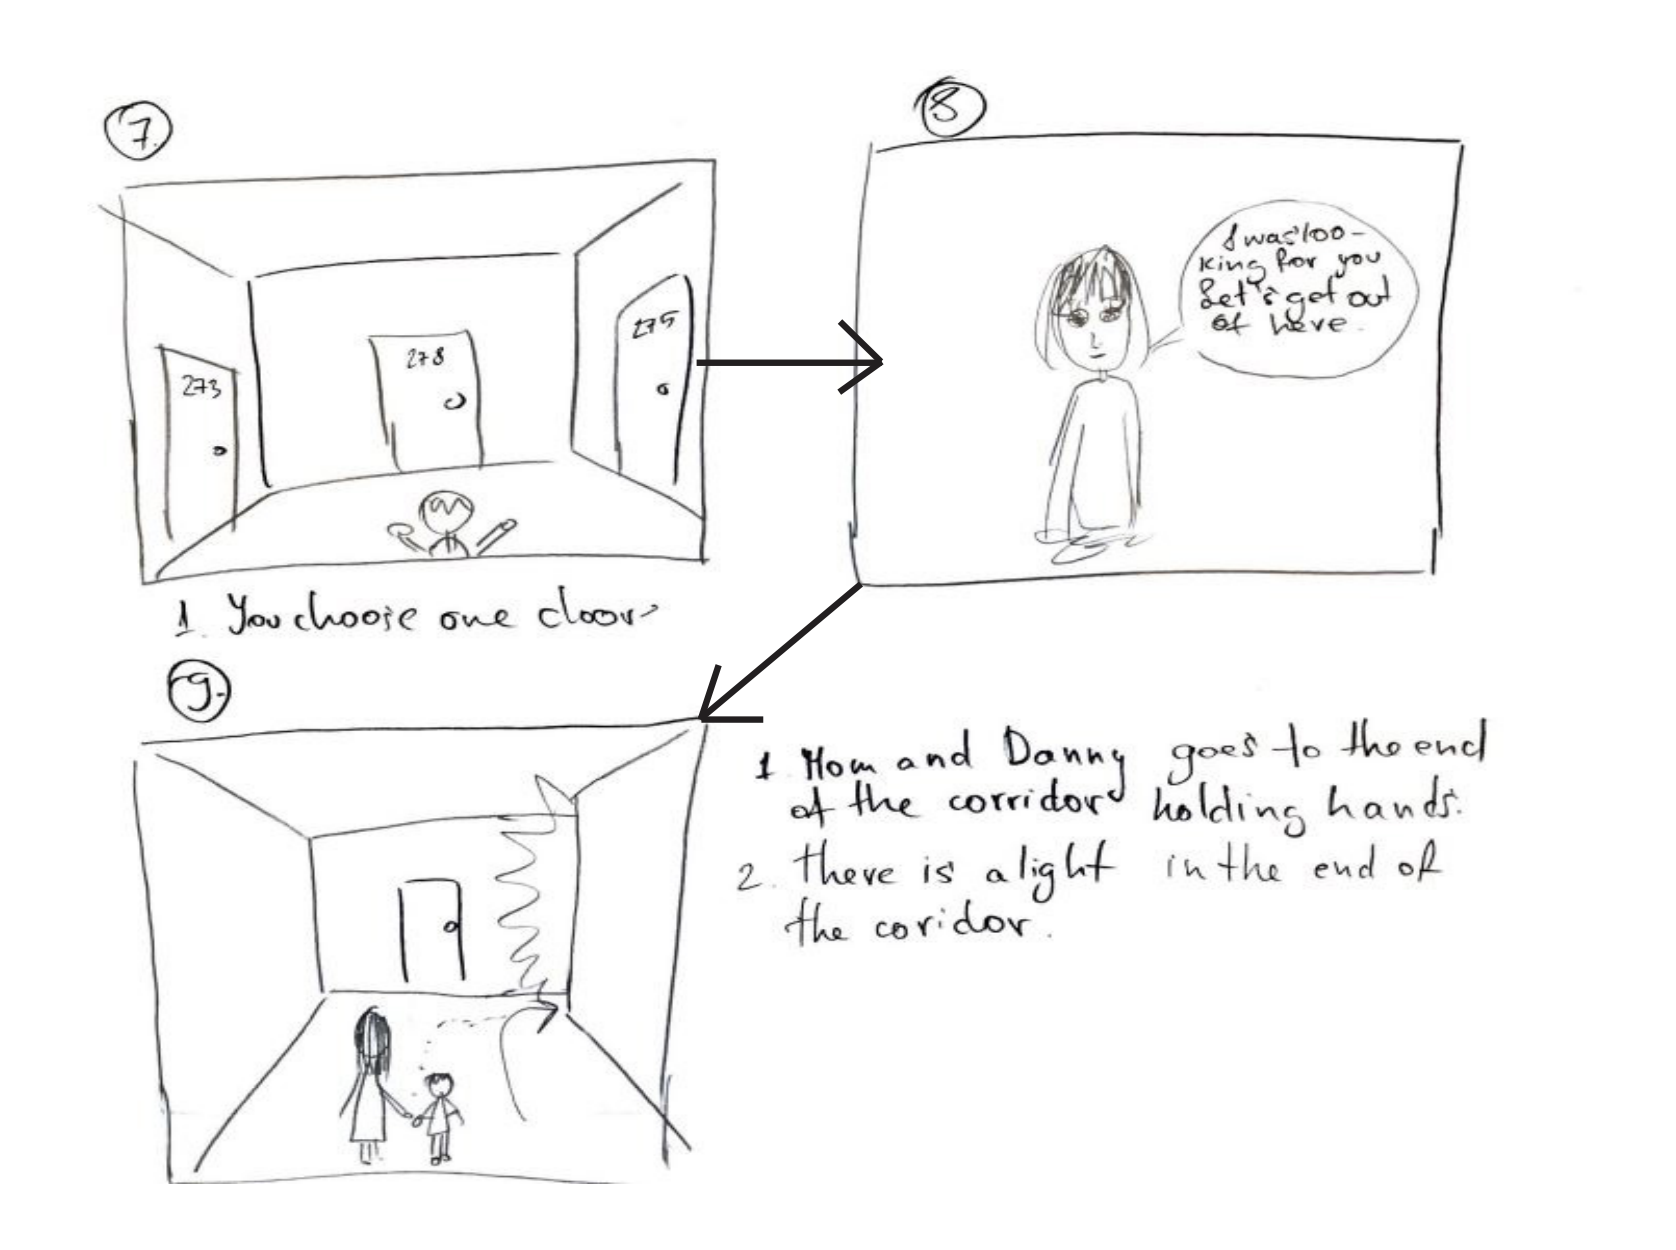 7.
273
278
275
1. You choose one door
8
I was loo-
king for you
Let's get out
of here.
9.
1. Mom and Danny goes to the end
of the corridor holding hands.
2. there is a light in the end of
the coridor.